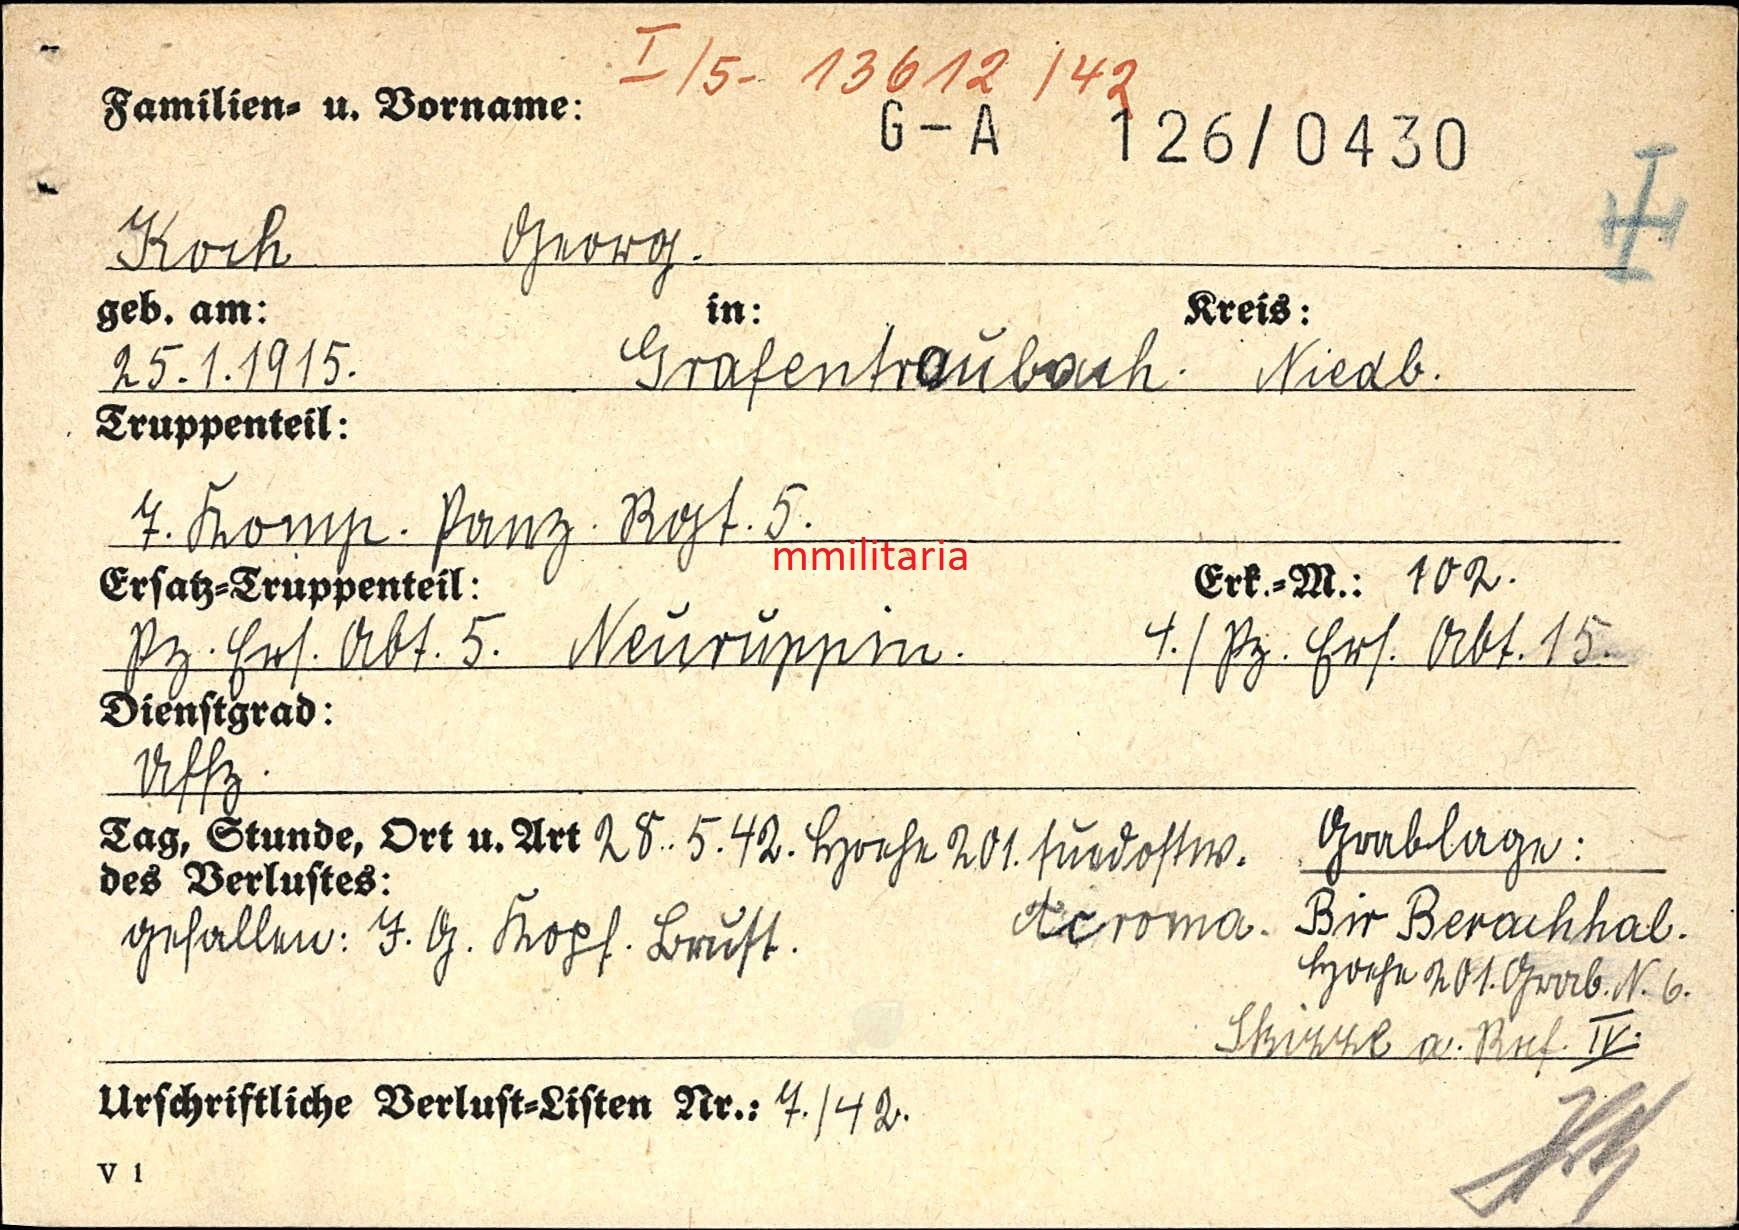 I/5- 13612/42
Familien- u. Vorname:
G-A 126/0430
Koch Georg.
geb. am: in: Kreis:
25.1.1915. Grafentraubach. Niedb.
Truppenteil:
7. Komp. Panz. Rgt. 5.
mmilitaria
Ersatz-Truppenteil: Erk.-M.: 102.
Pz. Ers. Abt. 5. Neuruppin. 4./Pz. Ers. Abt. 15.
Dienstgrad:
Uffz.
Tag, Stunde, Ort u. Art 28.5.42. Hoehe 201. suedostw. Grablage:
des Verlustes:
gefallen: I. G. Kopf. Brust. Acroma. Bir Berachhal.
Hoehe 201. Grab. N. 6.
Skizze a. Ref. IV.
Urschriftliche Verlust-Listen Nr.: 7./42.
V 1